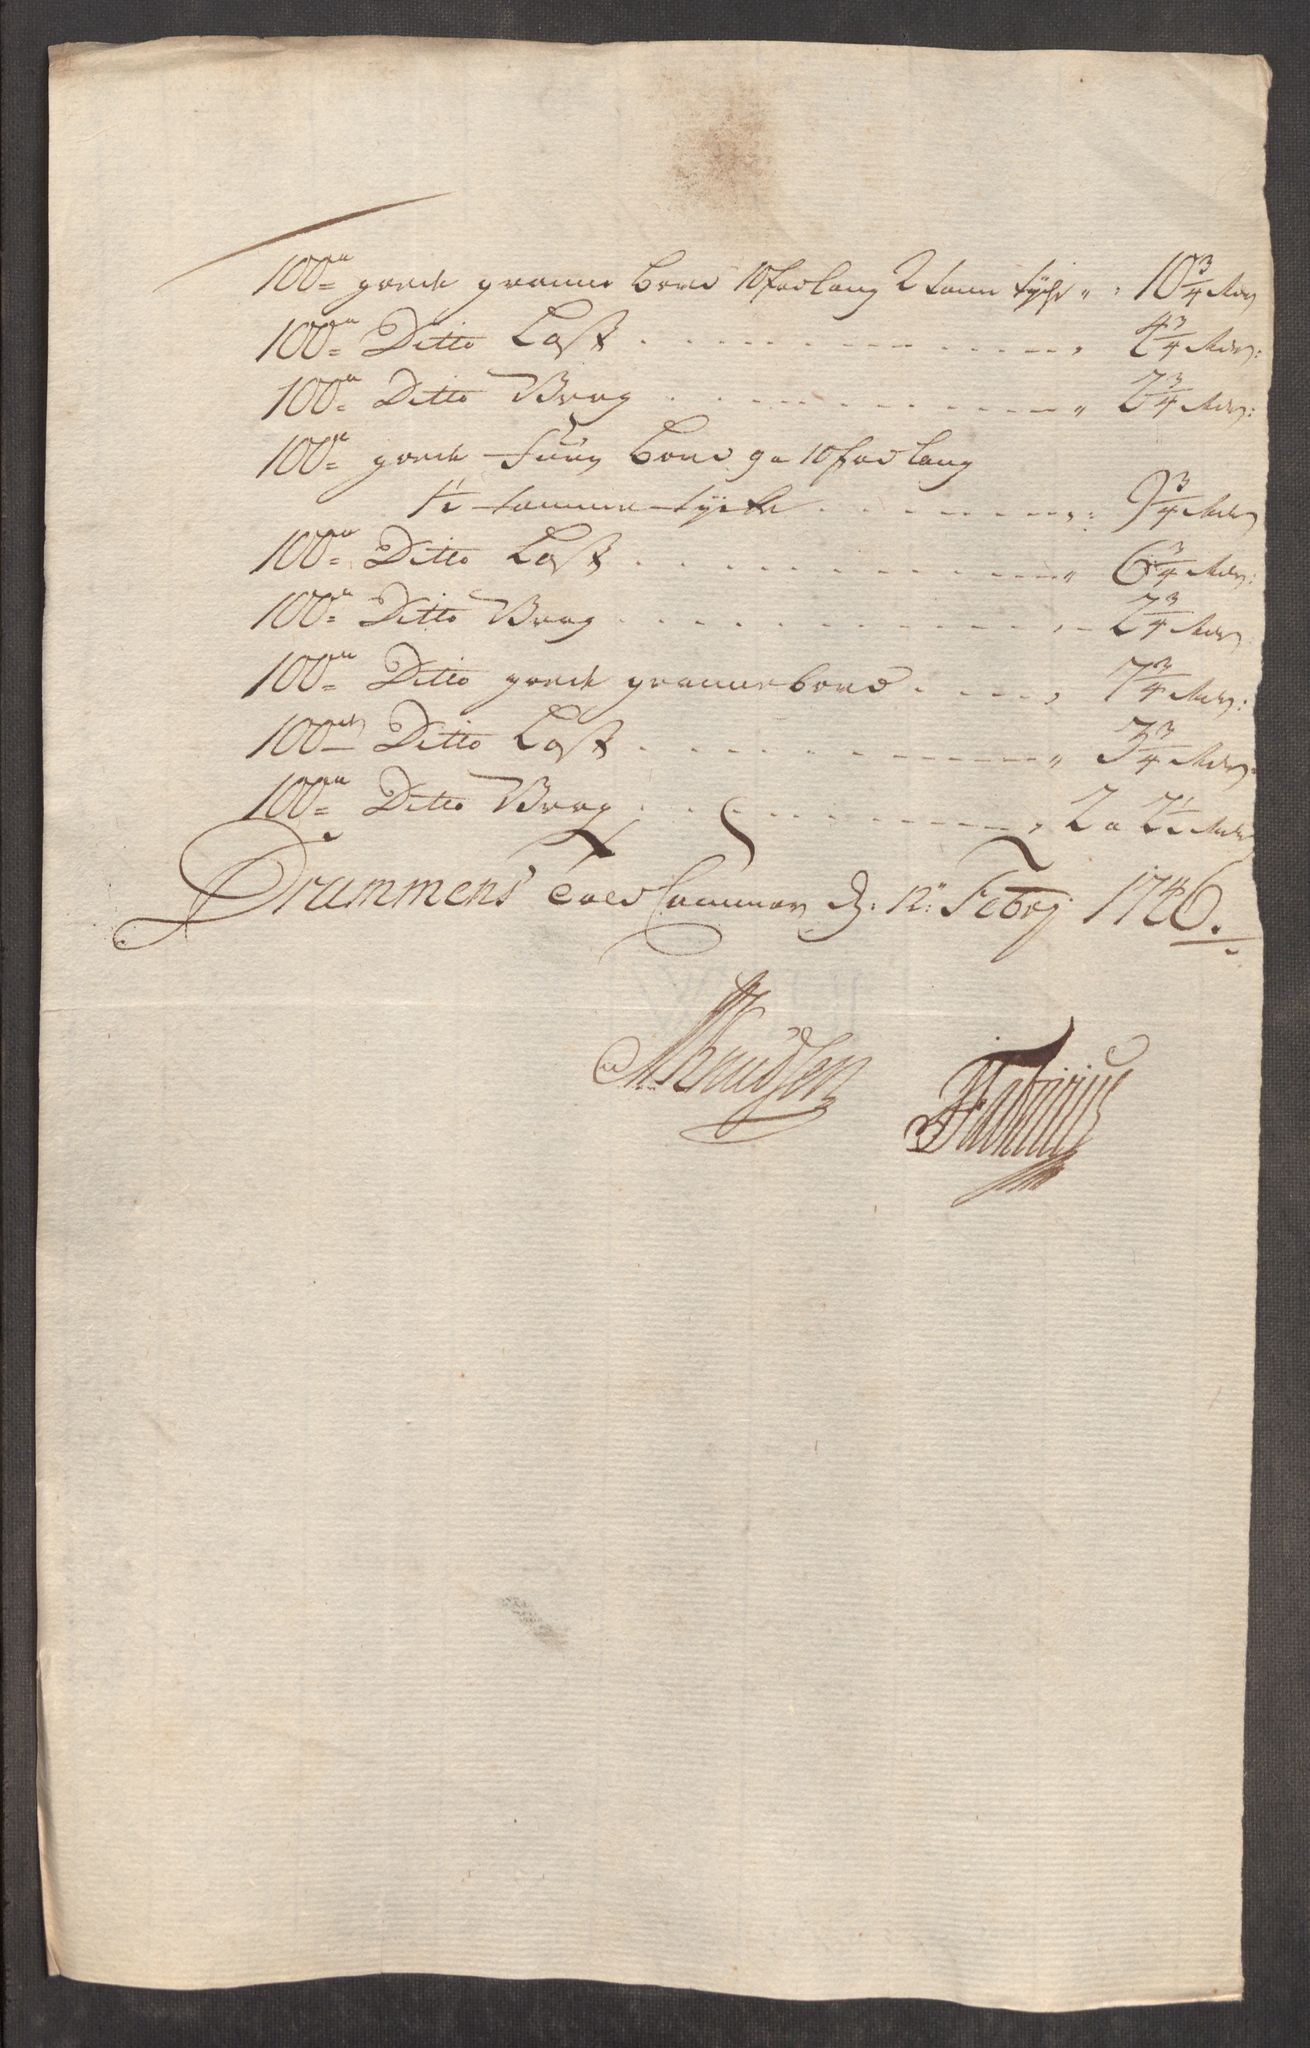 100de goede granne bord 10 fod lang 2 tom tyck " : 10 3/4 Mdr
100de Ditto Last " 4 3/4 Mdr:
100de Ditto Vrag " 2 3/4 Mdr:
100de goede furu bord 9 a 10 fod lang
1 1/2 tomme tycke " : 9 3/4 Mdr
100de Ditto Last " 6 3/4 Mdr:
100de Ditto Vrag 2 3/4 Mdr:
100de Ditto goede granne bord 7 3/4 Mdr:
100de Ditto Last " 3 3/4 Mdr:
100de Ditto Vrag 2 a 2 1/2 Mdr
Drammens Told Cammer d: 12: Febrj: 1746.
Knudsen
Fabricius